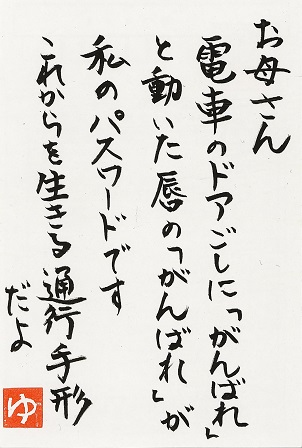 お母さん
電車のドアごしに「がんばれ」
と動いた唇の「がんばれ」が
私のパスワードです
これからを生きる通行手形
だよ
ゆ